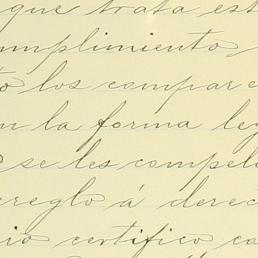 que trata est
mplimiento
to los compare
n la forma leg
se les compel
rreglo á derec
io certifico co